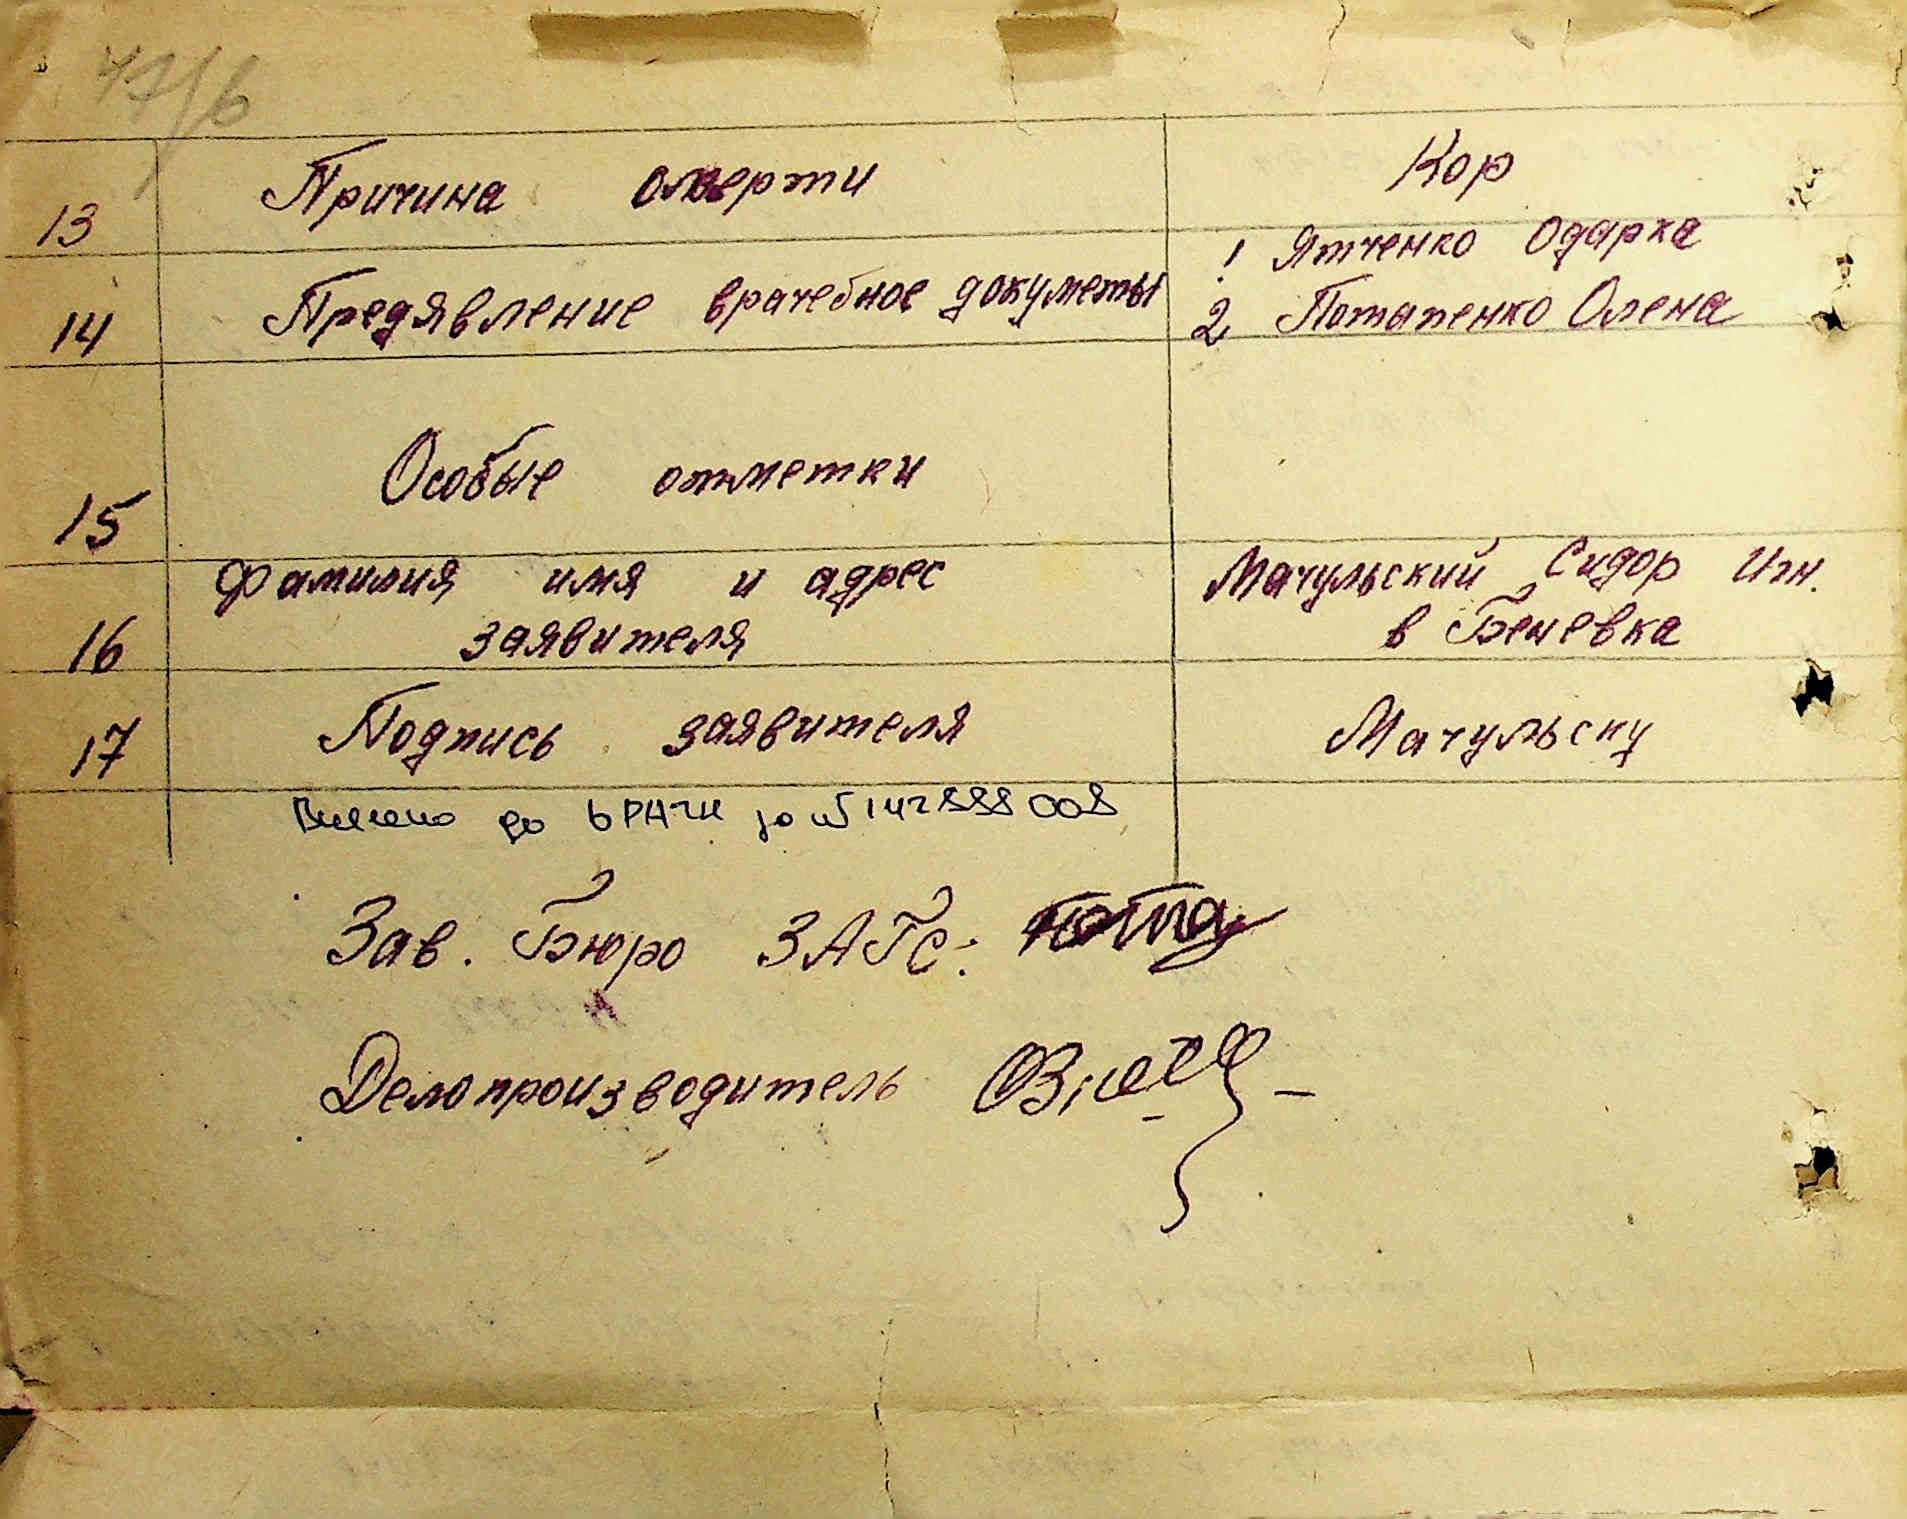 13 Причина смерти Кор
14 Предявление врачебное докуметы 1 Ятченко Одарка
2 Потапенко Олена
15 Особые отметки
16 Фамилия имя и адрес Мачульский Сидор Игн.
заявителя в Беневка
17 Подпись заявителя Мачульску
Внесено до ДРАЦС за № 142888008
Зав. Бюро ЗАГС:
Делопроизводитель